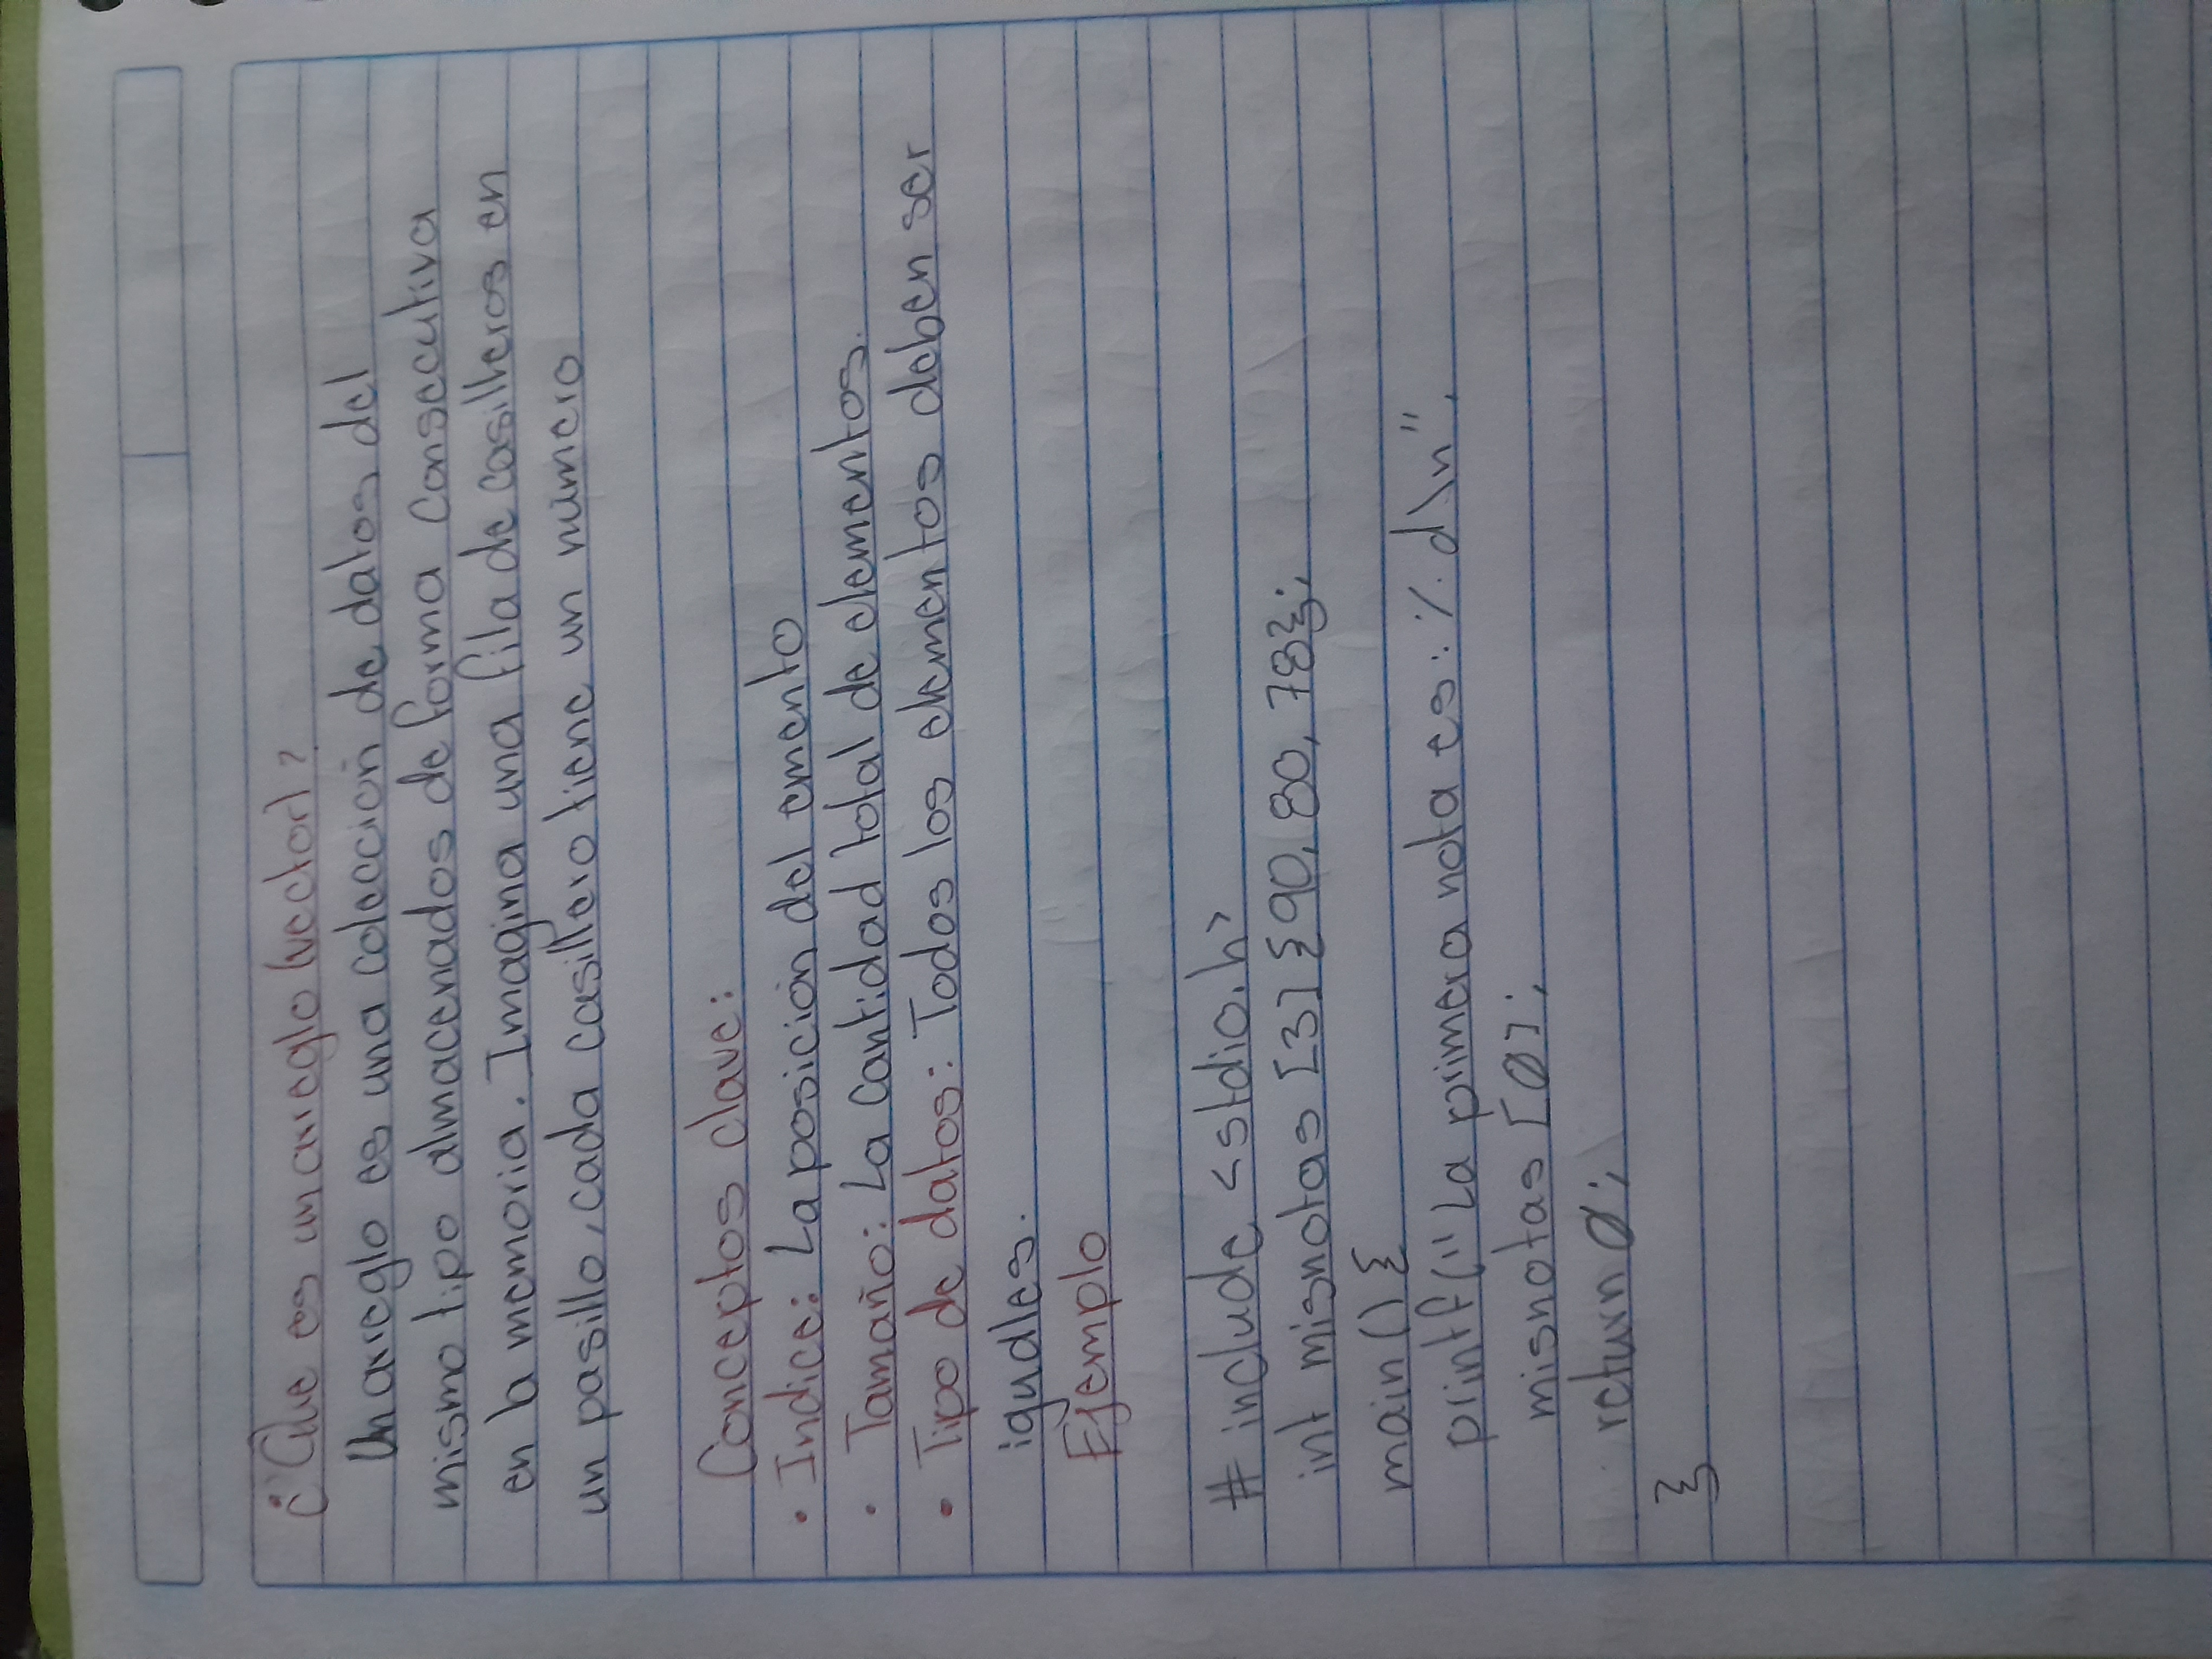 ¿Que es un arreglo (vector)?
Un arreglo es una colección de datos del
mismo tipo almacenados de forma consecutiva
en la memoria. Imagina una fila de casilleros en
un pasillo, cada casillero tiene un número
Conceptos clave:
• Indice: La posición del emento
• Tamaño: La cantidad total de elementos.
• Tipo de datos: Todos los elementos deben ser
iguales.
Ejemplo
# include <stdio.h>
int misnotas [3] {90, 80, 78};
main () {
printf (" La primera nota es: %d\n",
misnotas [0];
return 0;
}